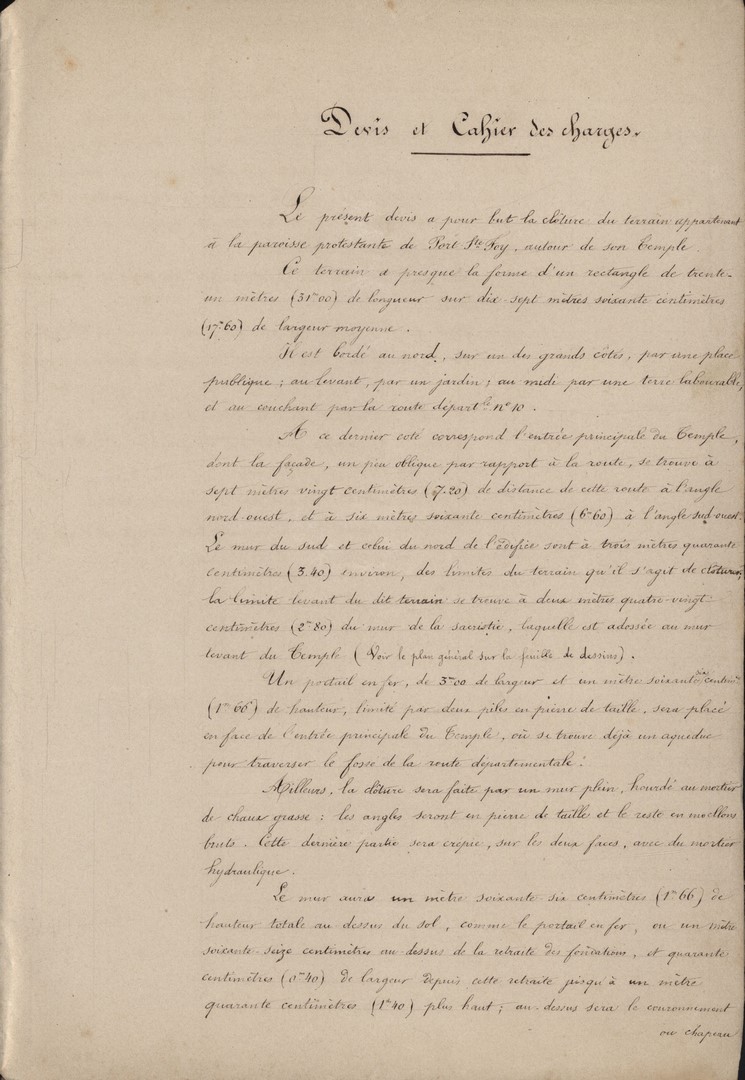 Devis et Cahier des charges.
Le présent devis a pour but la clôture du terrain appartenant
à la paroisse protestante de Port Ste Foy, autour de son Temple.
Ce terrain a presque la forme d'un rectangle de trente-
un mètres (31m00) de longueur sur dix-sept mètres soixante centimètres
(17m60) de largeur moyenne.
Il est bordé au nord, sur un des grands côtés, par une place
publique ; au levant, par un jardin ; au midi par une terre labourable,
et au couchant par la route départle n° 10.
A ce dernier coté correspond l'entrée principale du Temple,
dont la façade, un peu oblique par rapport à la route, se trouve à
sept mètres vingt centimètres (7m20) de distance de cette route à l'angle
nord-ouest, et à six mètres soixante centimètres (6m60) à l'angle sud-ouest.
Le mur du sud et celui du nord de l'édifice sont à trois mètres quarante
centimètres (3.40) environ, des limites du terrain qu'il s'agit de clôturer,
la limite levant du dit terrain se trouve à deux mètres quatre-vingt
centimètres (2m80) du mur de la sacristie, laquelle est adossée au mur
levant du Temple (Voir le plan général sur la feuille de dessins).
Un portail en fer, de 3m00 de largeur et un mètre soixante six centim
(1m66) de hauteur, limité par deux piles en pierre de taille, sera placé
en face de l'entrée principale du Temple, où se trouve déjà un aqueduc
pour traverser le fossé de la route départementale.
Ailleurs, la clôture sera faite par un mur plein, hourdé au mortier
de chaux grasse : les angles seront en pierre de taille et le reste en moellons
bruts. Cette dernière partie sera crépie, sur les deux faces, avec du mortier
hydraulique.
Le mur aura un mètre soixante-six centimètres (1m66) de
hauteur totale au dessus du sol, comme le portail en fer, ou un mètre
soixante-seize centimètres au-dessus de la retraite des fondations, et quarante
centimètres (0m40) de largeur depuis cette retraite jusqu'à un mètre
quarante centimètres (1m40) plus haut ; au-dessus sera le couronnement
ou chapeau